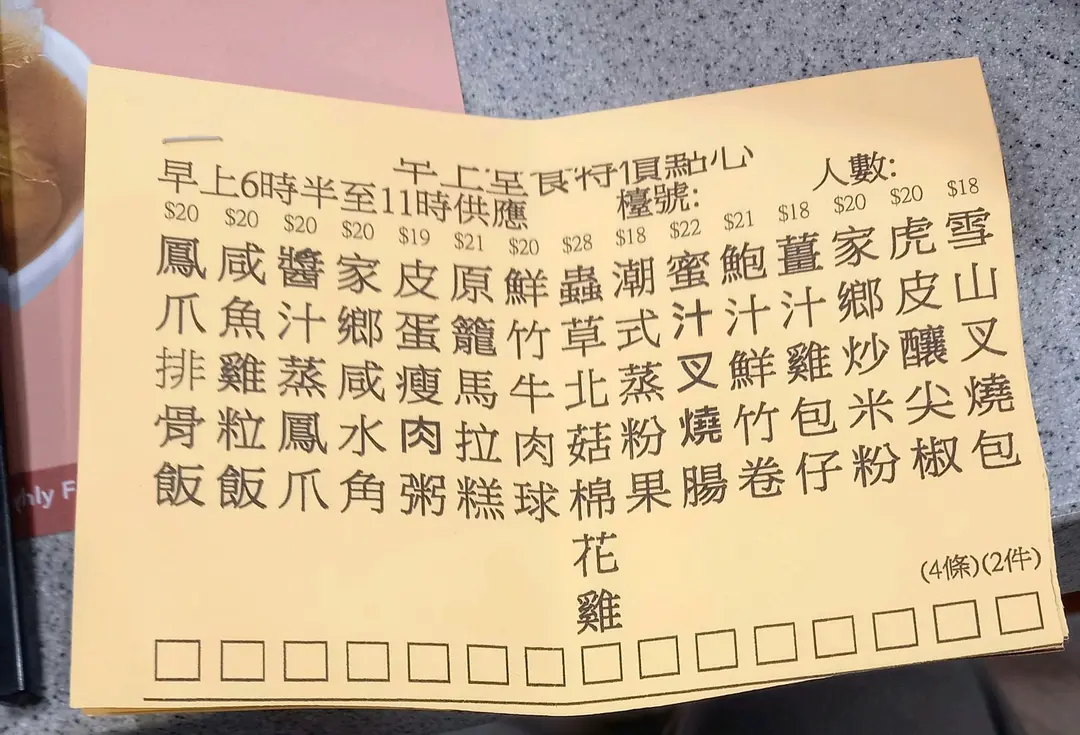 早上堂食特價點心
早上6時半至11時供應
檯號:
人數:
$18
雪山叉燒包
(2件)
$20
虎皮釀尖椒
(4條)
$20
家鄉炒米粉
$18
薑汁雞包仔
$21
鮑汁鮮竹卷
$22
蜜汁叉燒腸
$18
潮式蒸粉果
$28
蟲草北菇棉花雞
$20
鮮竹牛肉球
$21
原籠馬拉糕
$19
皮蛋瘦肉粥
$20
家鄉咸水角
$20
醬汁蒸鳳爪
$20
咸魚雞粒飯
$20
鳳爪排骨飯